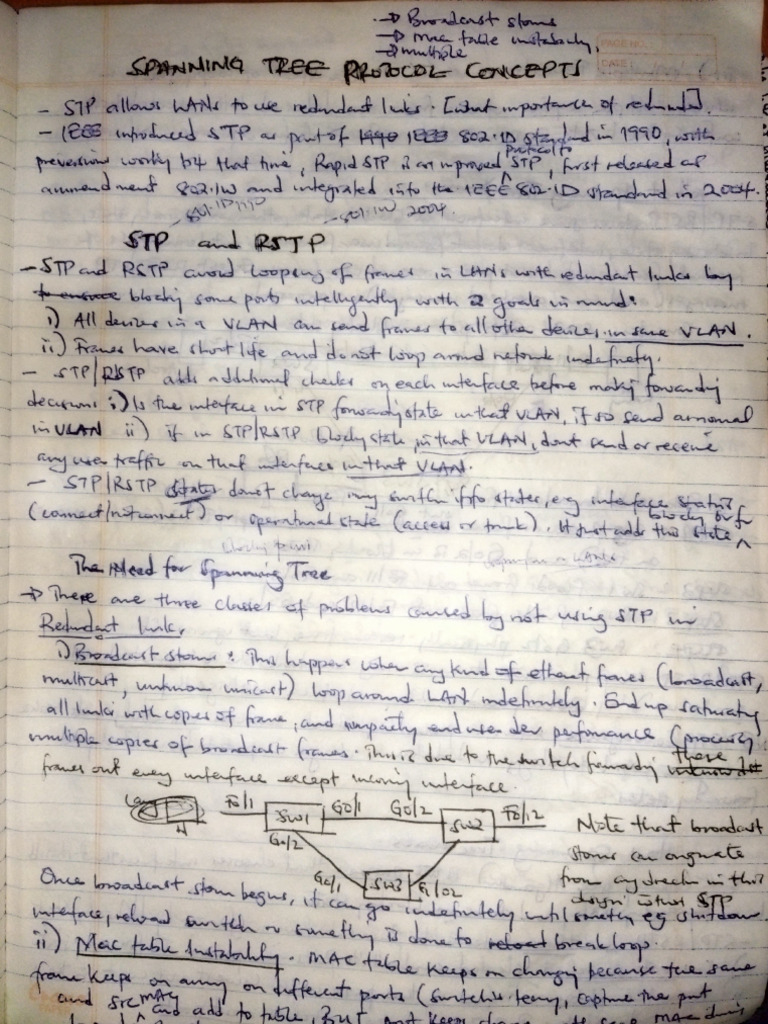 → Broadcast storms
→ Mac table instability,
→ multiple
PAGE NO.
DATE:
SPANNING TREE PROTOCOL CONCEPTS
- STP allows LANs to use redundant links. [what importance of redundant].
- IEEE introduced STP as part of 802.1D standard in 1990, with
that time, Rapid STP is an improved protocol to STP, first released as
ammendment 802.1W and integrated into the IEEE 802.1D standard in 2004.
2004.
STP and RSTP
- STP and RSTP avoid looping of frames in LANs with redundant links by
blocking some ports intelligently with 2 goals in mind:
i) All devices in a VLAN can send frames to all other devices in same VLAN.
ii) Frames have short life and do not loop around network indefinitely.
- STP/RSTP adds additional checks on each interface before making forwarding
decisions i) Is the interface in STP forwarding state in that VLAN, if so send as normal
in VLAN ii) if in STP/RSTP blocking state, in that VLAN, dont send or receive
any user traffic on that interface in that VLAN.
- STP/RSTP states dont change any switch info states, e.g interface status
(connect/notconnect) or operational state (access or trunk). It just adds this state
The Need for Spanning Tree
→ There are three classes of problems caused by not using STP in
Redundant link.
i) Broadcast storms: This happens when any kind of ethernet frames (broadcast,
multicast, unknown unicast) loop around LAN indefinitely. End up saturating
all links with copies of frame, and end user dev performance (processing
multiple copies of broadcast frames. This is due to the switch forwarding these
frames out every interface except incoming interface.
F0/1 SW1 G0/1 G0/2 SW2 F0/12
G0/2
G0/1 SW3
Note that broadcast
storms can originate
from any direction in this
design without STP
Once broadcast storm begins, it can go indefinitely until something eg shutdown
interface, reload switch or something is done to break loop.
ii) Mac table Instability. MAC table keeps on changing because the same
frame keeps on on different ports (switches learn, capture the port
and src MAC and add to table, BUT